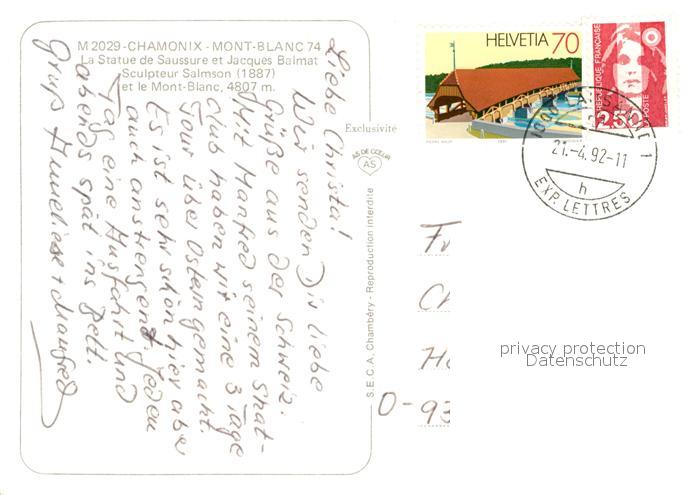 M 2029-CHAMONIX - MONT-BLANC 74
La Statue de Saussure et Jacques Balmat
Sculpteur Salmson (1887)
et le Mont-Blanc, 4807 m.
Exclusivité
AS DE CŒUR
AS
S.E.C.A. Chambéry - Reproduction interdite
Liebe Christa!
Wir senden Dir liebe
Grüße aus der Schweiz.
Mit Manfred seinem Skat-
club haben wir eine 3 Tage
Tour über Ostern gemacht.
Es ist sehr schön hier aber
auch anstrengend. Jeden
Tag eine Ausfahrt und
abends spät ins Bett.
Gruß Anneliese + Manfred
HELVETIA 70
REPUBLIQUE FRANÇAISE
LA POSTE
2,50
21.-4.92-11
h
EXP. LETTRES
Fr
Ch
Ha
D- 93
privacy protection
Datenschutz